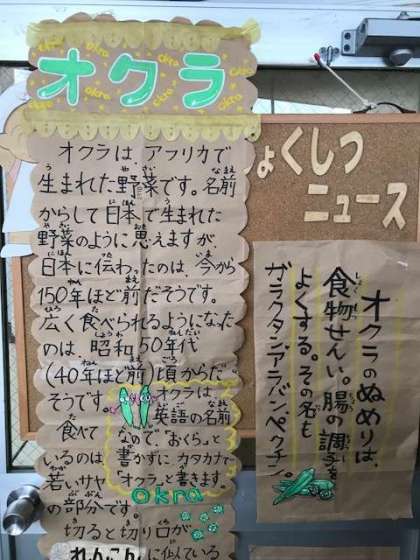 オクラ
オクラは、アフリカで
生まれた野菜です。名前
からして日本で生まれた
野菜のように思えますが、
日本に伝わったのは、今から
150年ほど前だそうです。
広く食べられるようになった
のは、昭和50年代
(40年ほど前)頃からだ
そうです。
食べて
いるのは
若いサヤ
の部分です。
切ると切り口が
れんこんに似ている
オクラは
英語の名前
なので、"おくら"と
書かずに、カタカナで
"オクラ"と書きます。
okra
ょくしつ
ニュース
オクラのぬめりは、
食物せんい。腸の調子を
よくする。その名も
ガラクタン、アラバン、ペクチン。